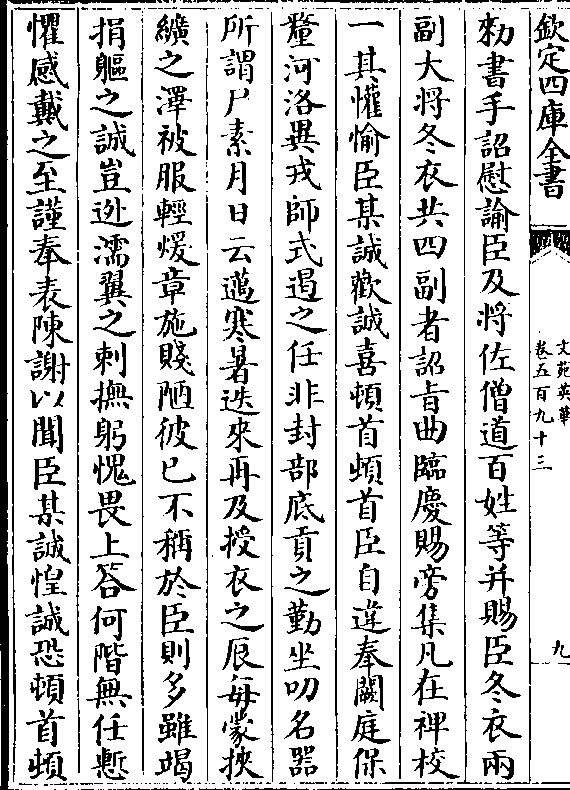 欽定四庫全書
文苑英華
卷五百九十三
九
勑書手詔慰諭臣及將佐僧道百姓等并賜臣冬衣兩
副大將冬衣共四副者詔㫖曲臨慶賜旁集凡在裨校
一其懽愉臣某誠歡誠喜頓首頓首臣自違奉闕庭保
釐河洛異戎師式遏之任非封部底貢之勤坐叨名器
所謂尸素月日云邁寒暑迭來再及授衣之辰每蒙挾
纊之澤被服輕煖章施賤陋彼已不稱於臣則多雖竭
捐軀之誠豈逃濡翼之刺撫躬愧畏上答何階無任慙
懼感戴之至謹奉表陳謝以聞臣某誠惶誠恐頓首頓